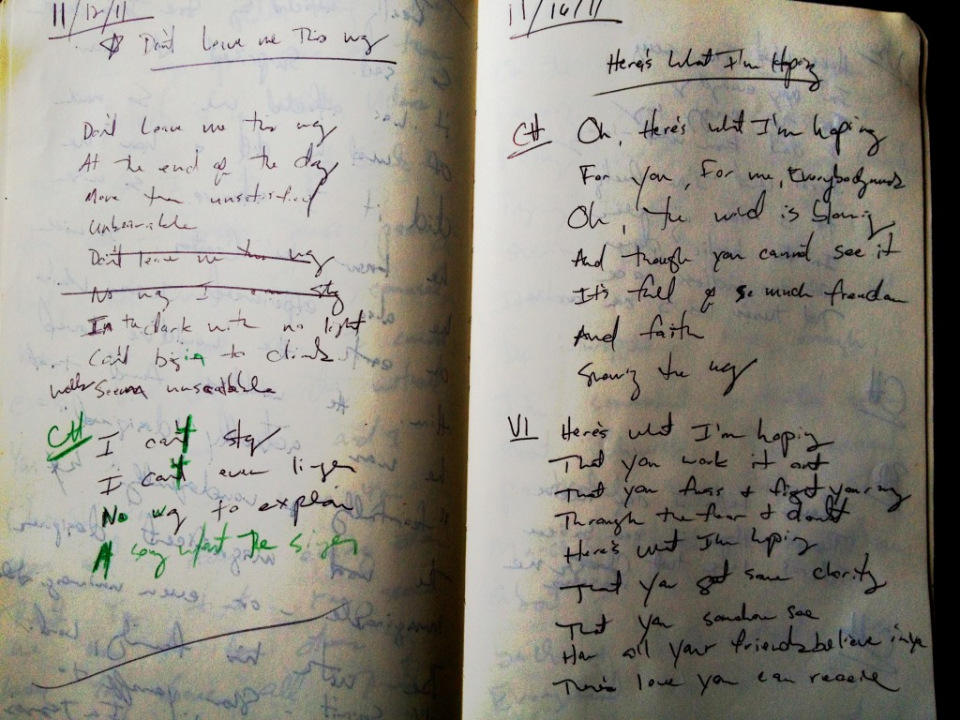 11/12/11
Don't Leave me This way
Don't Leave me this way
At the end of the day
More than unsatisfying
Unbearible
Don't leave me this way
No way I can stay
In the dark with no light
Can't begin to climb
walls Seem unscalable
CH I can't stay
I can't even linger
No way to explain
A song w/out the singer
11/16/11
Here's What I'm Hoping
CH Oh, Here's what I'm hoping
For you, For me, Everybody needs
Oh, the wind is blowing
And though you cannot see it
It's full of so much freedom
And faith
Showing the way
V1 Here's what I'm hoping
That you work it out
That you fuss & fight your way
Through the fear & doubt
Here's what I'm hoping
That you get some clarity
That you somehow see
How all your friends believe in ya
There's love you can receive